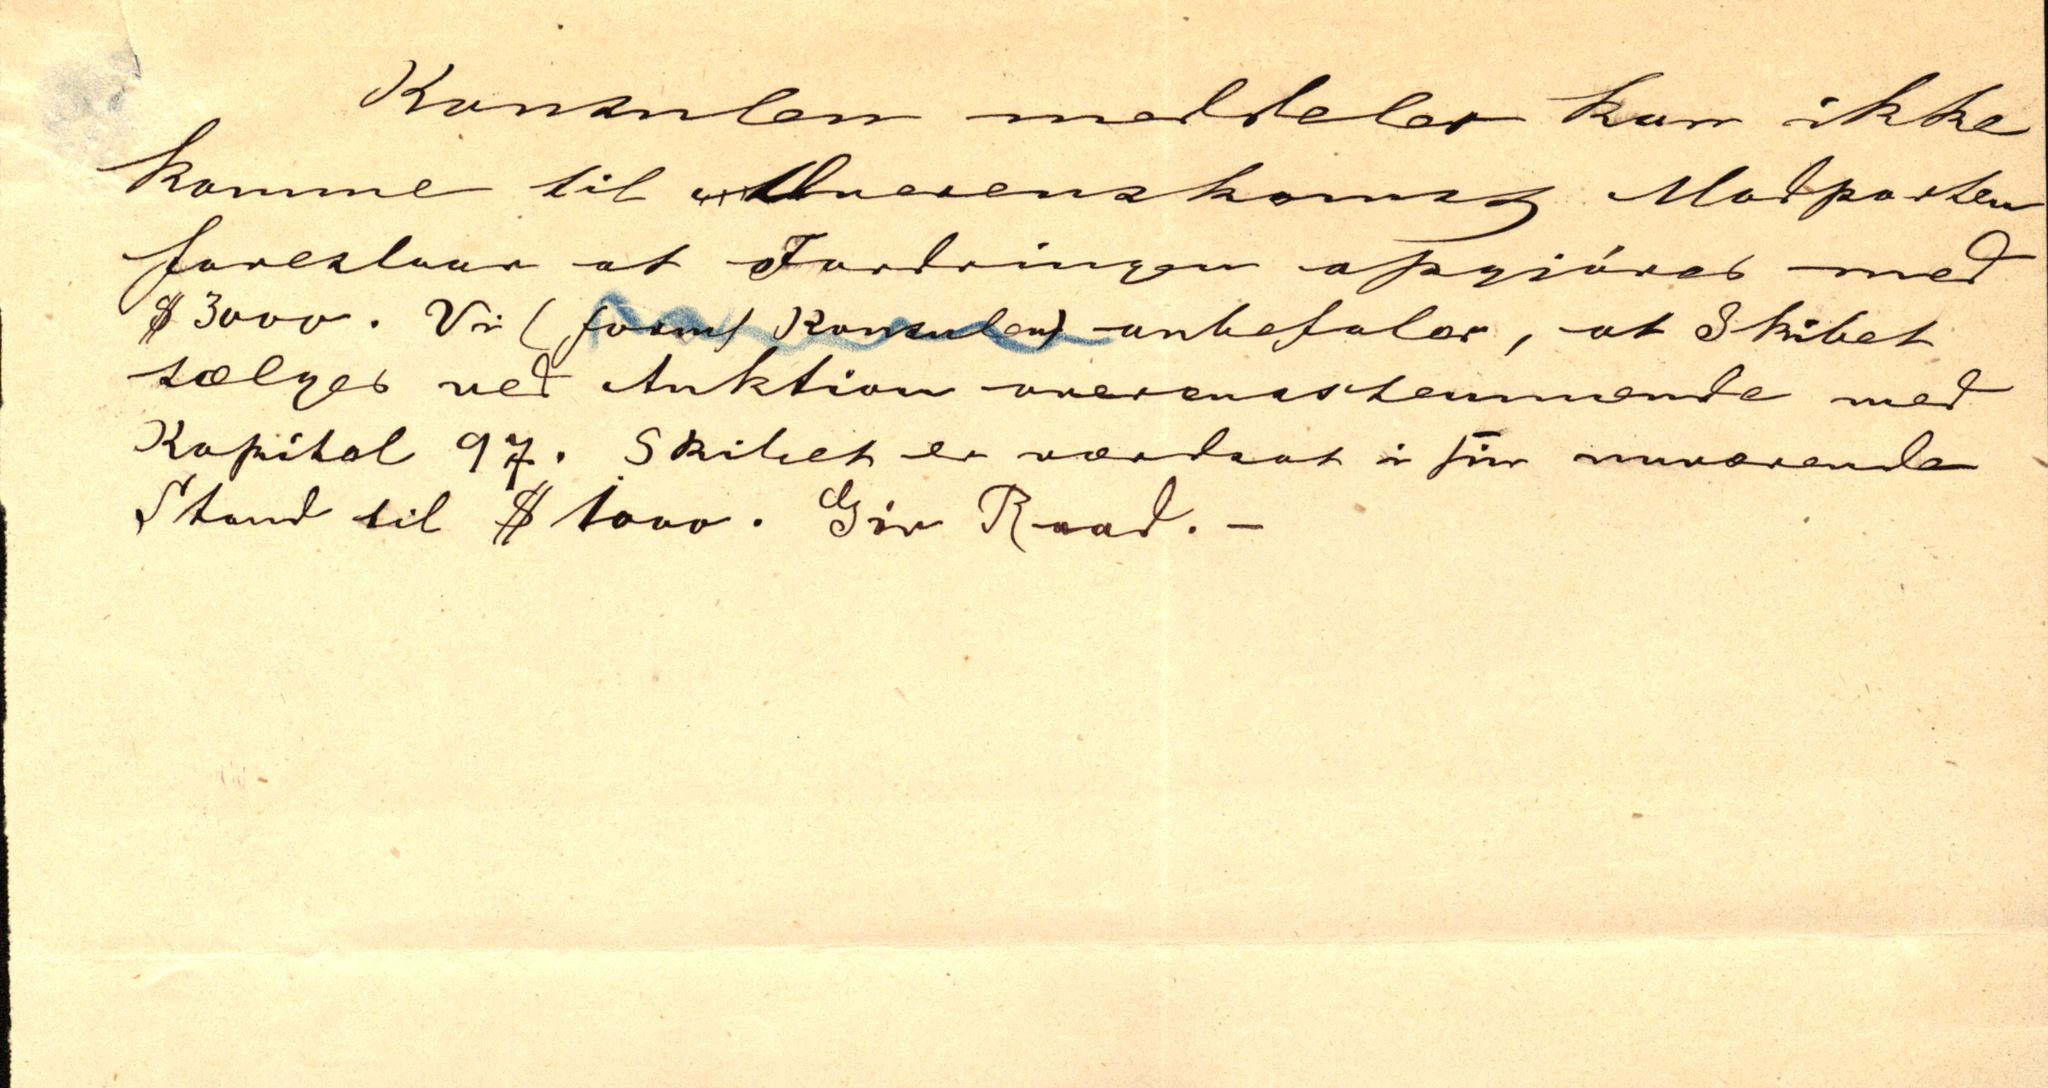 Konsulen meddeler kan ikke
komme til Overenskomst Modparten
foreslaar at Fordringen opgjöres med
$ 3000. Vi (form/ Konsulen) anbefaler, at Skibet
sælges ved Auktion overensstemmende med
Kapitel 97. Skibet er værdsat i sin nuværende
Stand til $ 1000. Giv Raad. –